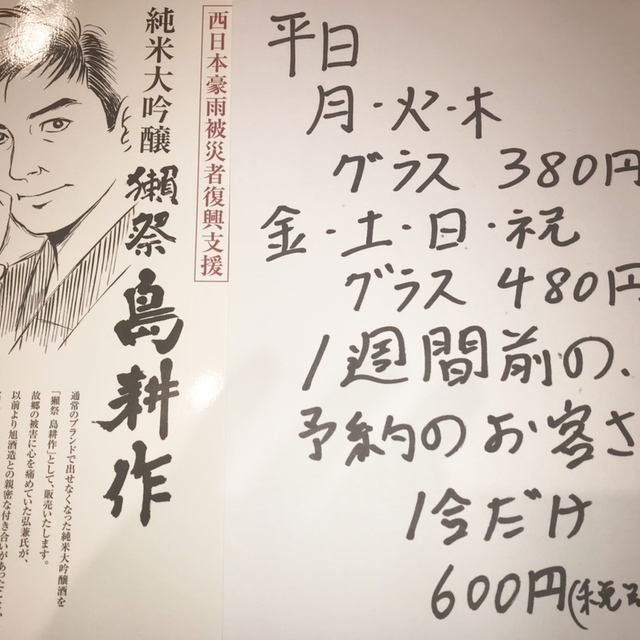 西日本豪雨被災者復興支援
純米大吟醸
獺祭 島耕作
通常のブランドで出せなくなった純米大吟醸酒を
「獺祭 島耕作」として、販売いたします。
故郷の被害に心を痛めていた弘兼氏が、
以前より旭酒造との親密な付き合いがあったことも
平日
月・火・木
グラス 380円
金・土・日・祝
グラス 480円
1週間前の、
予約のお客さ
1今だけ
600円(税